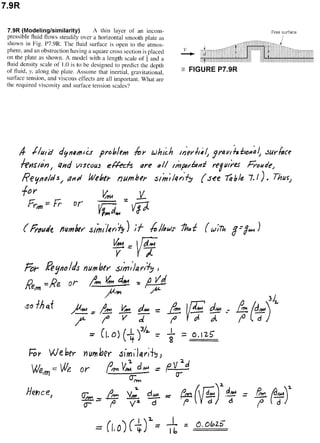 7.9R
7.9R (Modeling/similarity) A thin layer of an incom-
pressible fluid flows steadily over a horizontal smooth plate as
shown in Fig. P7.9R. The fluid surface is open to the atmos-
phere, and an obstruction having a square cross section is placed
on the plate as shown. A model with a length scale of 1/4 and a
fluid density scale of 1.0 is to be designed to predict the depth
of fluid, y, along the plate. Assume that inertial, gravitational,
surface tension, and viscous effects are all important. What are
the required viscosity and surface tension scales?
Free surface
V
FIGURE P7.9R
A fluid dynamics problem for which inertial, gravitational, surface
tension, and viscous effects are all important requires Froude,
Reynolds, and Weber number similarity (see Table 7.1). Thus,
for
Frm = Fr or Vm/√(gm dm) = V/√(g d)
(Froude number similarity) it follows that (with g = gm)
Vm/V = √(dm/d)
For Reynolds number similarity,
Rem = Re or ρm Vm dm/μm = ρVd/μ
so that μm/μ = ρm/ρ Vm/V dm/d = ρm/ρ √(dm/d) dm/d = ρm/ρ (dm/d)^3/2
= (1.0)(1/4)^3/2 = 1/8 = 0.125
For Weber number similarity,
Wem = We or ρm Vm² dm/σm = ρV²d/σ
Hence, σm/σ = ρm/ρ Vm²/V² dm/d = ρm/ρ (√(dm/d))² dm/d = ρm/ρ (dm/d)²
= (1.0)(1/4)² = 1/16 = 0.0625